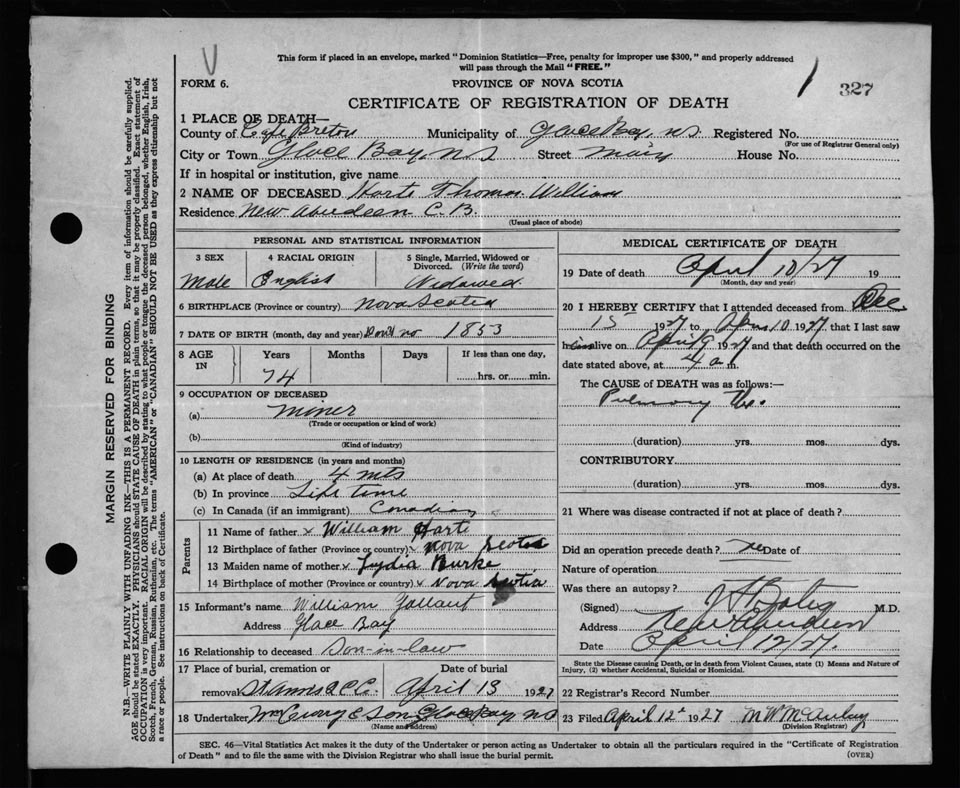 This form if placed in an envelope, marked "Dominion Statistics—Free, penalty for improper use $300," and properly addressed
will pass through the Mail "FREE."
FORM 6.
PROVINCE OF NOVA SCOTIA
327
CERTIFICATE OF REGISTRATION OF DEATH
1 PLACE OF DEATH—
County of Cape Breton Municipality of Glace Bay, NS Registered No.
(For use of Registrar General only)
City or Town Glace Bay, NS Street Main House No.
If in hospital or institution, give name
2 NAME OF DECEASED Harte Thomas William
Residence New Aberdeen C.B.
(Usual place of abode)
PERSONAL AND STATISTICAL INFORMATION
3 SEX 4 RACIAL ORIGIN 5 Single, Married, Widowed or
Divorced. (Write the word)
Male English Widowed
6 BIRTHPLACE (Province or country) Nova Scotia
7 DATE OF BIRTH (month, day and year) 1853
8 AGE IN Years Months Days If less than one day,
74 hrs. or min.
9 OCCUPATION OF DECEASED
(a) miner
(Trade or occupation or kind of work)
(b)
(Kind of industry)
10 LENGTH OF RESIDENCE (in years and months)
(a) At place of death 4 mts
(b) In province Life time
(c) In Canada (if an immigrant) Canadian
Parents
11 Name of father x William Harte
12 Birthplace of father (Province or country) x Nova Scotia
13 Maiden name of mother x Lydia Burke
14 Birthplace of mother (Province or country) x Nova Scotia
15 Informant's name William Gallant
Address Glace Bay
16 Relationship to deceased Son-in-law
17 Place of burial, cremation or Date of burial
removal St Annes R.C.C. April 13 1927
18 Undertaker Glace Bay NS
(Name and address)
MEDICAL CERTIFICATE OF DEATH
19 Date of death April 10/27 19
(Month, day and year)
20 I HEREBY CERTIFY that I attended deceased from Dec
15 1927 to April 10 1927, that I last saw
him alive on April 9 1927 and that death occurred on the
date stated above, at 4 a m.
The CAUSE OF DEATH was as follows:—
Pulmonary Tbc.
(duration) yrs. mos. dys.
CONTRIBUTORY.
(duration) yrs. mos. dys.
21 Where was disease contracted if not at place of death?
Did an operation precede death? no Date of
Nature of operation
Was there an autopsy?
(Signed) M.D.
Address New Aberdeen
Date April 12/27.
State the Disease causing Death, or in death from Violent Causes, state (1) Means and Nature of
Injury, (2) whether Accidental, Suicidal or Homicidal.
22 Registrar's Record Number
23 Filed April 12th 1927 M W McAulay
(Division Registrar)
SEC. 46—Vital Statistics Act makes it the duty of the Undertaker or person acting as Undertaker to obtain all the particulars required in the "Certificate of Registration
of Death" and to file the same with the Division Registrar who shall issue the burial permit. (OVER)
MARGIN RESERVED FOR BINDING
N.B.—WRITE PLAINLY WITH UNFADING INK—THIS IS A PERMANENT RECORD. Every item of information should be carefully supplied.
AGE should be stated EXACTLY. PHYSICIANS should STATE CAUSE OF DEATH in plain terms, so that it may be properly classified. Exact statement of
OCCUPATION is very important. RACIAL ORIGIN will be described by stating to what people or tongue the deceased person belonged, whether English, Irish,
Scotch, French, German, Russian, Ruthenian, etc. The terms "AMERICAN" or "CANADIAN" SHOULD NOT BE USED as they express citizenship but not
a race or people. See instructions on back of Certificate.